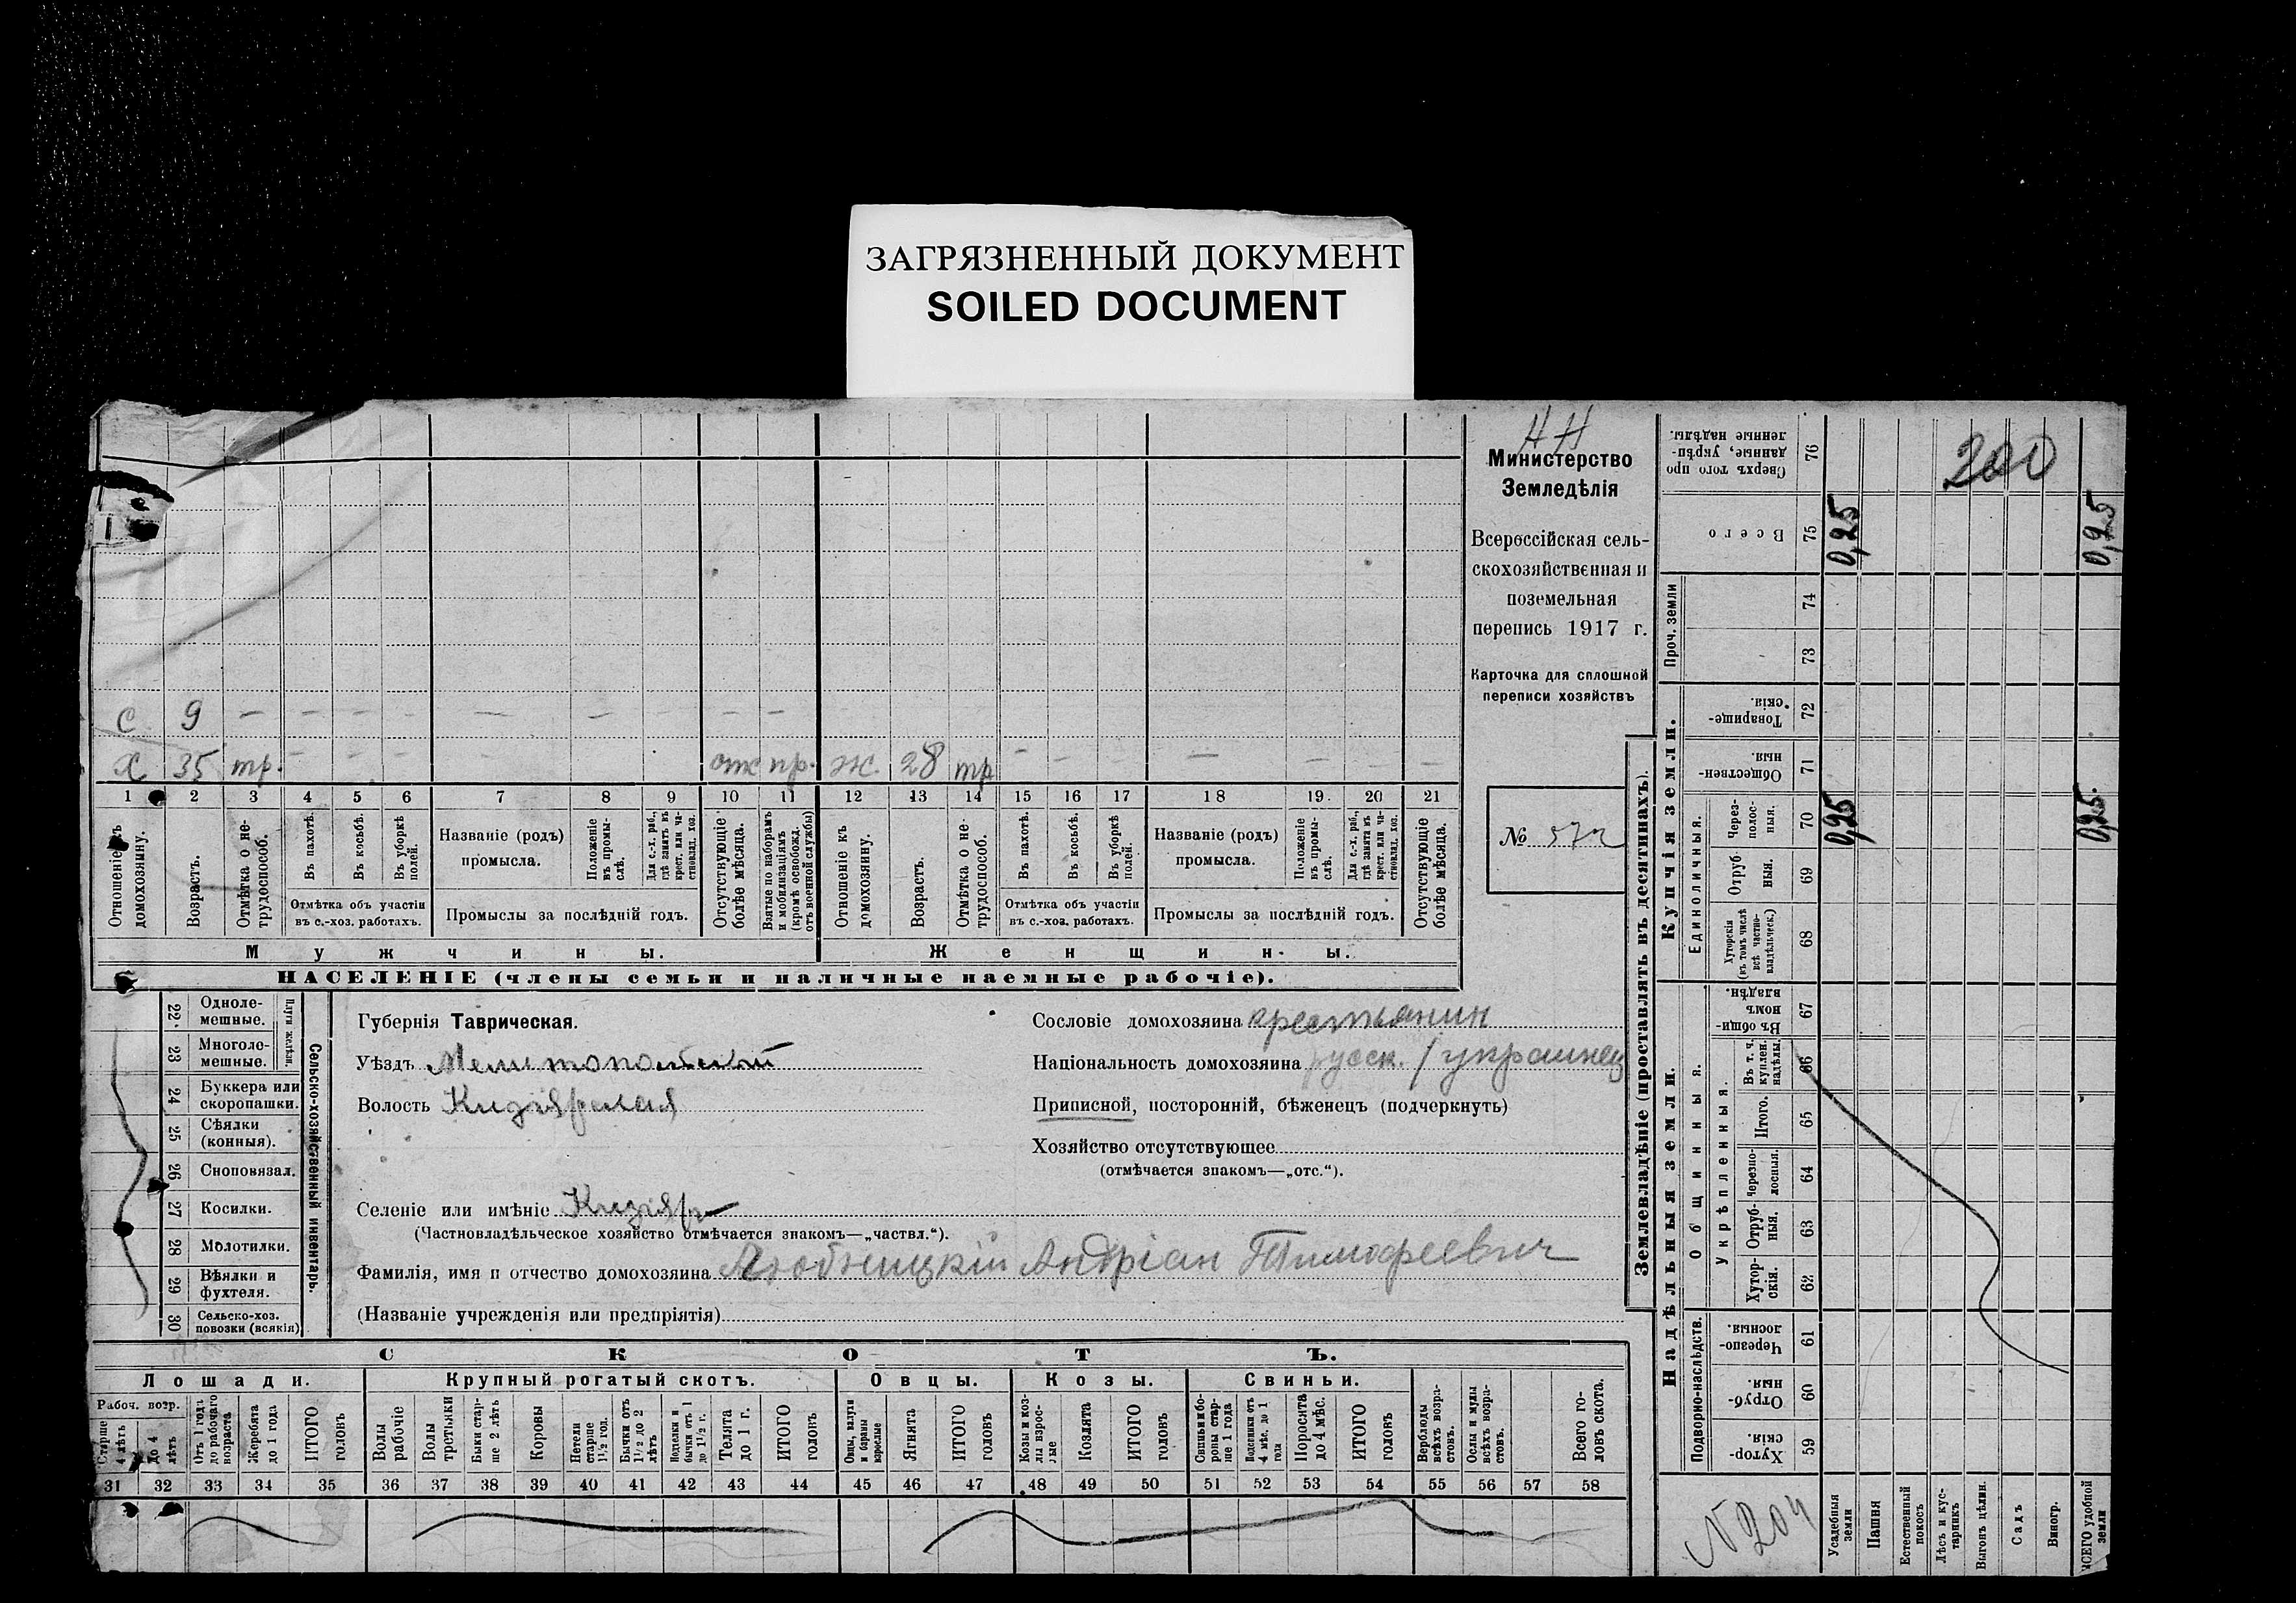 ЗАГРЯЗНЕННЫЙ ДОКУМЕНТ
SOILED DOCUMENT
НН
Министерство
Земледѣлія
Всероссійская сель-
скохозяйственная и
поземельная
перепись 1917 г.
Карточка для сплошной
переписи хозяйствъ
№
с 9 — — — — — — — — —
х 35 тр. — — — — — отс пр. ж. 28 тр — — — — — — —
1 2 3 4 5 6 7 8 9 10 11 12 13 14 15 16 17 18 19 20 21
Отношеніе къ домохозяину.
Возрастъ.
Отмѣтка о не-трудоспособ.
Въ пахотѣ.
Въ косьбѣ.
Въ уборкѣ полей.
Названіе (родъ) промысла.
Положеніе въ промы-слѣ.
Для с.-х. раб., гдѣ занятъ въ крест. или ча-стновлад. хоз.
Отсутствующіе болѣе мѣсяца.
Взятые по наборамъ и мобилизаціямъ (кромѣ освобожд. отъ военной службы)
Отношеніе къ домохозяину.
Возрастъ.
Отмѣтка о не-трудоспособ.
Въ пахотѣ.
Въ косьбѣ.
Въ уборкѣ полей.
Названіе (родъ) промысла.
Положеніе въ промы-слѣ.
Для с.-х. раб., гдѣ занята въ крест. или ча-стновлад. хоз.
Отсутствующіе болѣе мѣсяца.
Отмѣтка объ участіи въ с.-хоз. работахъ.
Промыслы за послѣдній годъ.
Отмѣтка объ участіи въ с.-хоз. работахъ.
Промыслы за послѣдній годъ.
Мужчины.
Женщины.
НАСЕЛЕНІЕ (члены семьи и наличные наемные рабочіе).
Сельско-хозяйственный инвентарь.
Плуги желѣзн.
22. Одноле-мешные.
23 Многоле-мешные.
24 Буккера или скоропашки.
25 Сѣялки (конныя).
26 Сноповязал.
27 Косилки.
28 Молотилки.
29 Вѣялки и фухтеля.
30 Сельско-хоз. повозки (всякія)
Губернія Таврическая.
Уѣздъ Мелитопольскій
Волость Кизіярская
Селеніе или имѣніе Кизіяръ
(Частновладѣльческое хозяйство отмѣчается знакомъ—„частвл.“).
Фамилія, имя и отчество домохозяина Андріан Тимофеевич
(Названіе учрежденія или предпріятія)
Сословіе домохозяина крестьянин
Національность домохозяина русск. / украинец
Приписной, посторонній, бѣженецъ (подчеркнуть)
Хозяйство отсутствующее
(отмѣчается знакомъ—„отс.“).
СКОТЪ.
Лошади. Крупный рогатый скотъ. Овцы. Козы. Свиньи.
Рабоч. возр.
Старше 4 лѣтъ
До 4 лѣтъ
Отъ 1 года до рабочаго возраста
Жеребята до 1 года
ИТОГО головъ
Волы рабочіе
Волы третьяки
Быки стар-ше 2 лѣтъ
Коровы
Нетели старше 1½ год.
Бычки отъ 1½ до 2 лѣтъ
Подтелки и бычки отъ 1 до 1½ г.
Телята до 1 г.
ИТОГО головъ
Овцы, валухи и бараны взрослые
Ягнята
ИТОГО головъ
Козы и коз-лы взрос-лые
Козлята
ИТОГО головъ
Свиньи и бо-ровы стар-ше 1 года
Подсвинки отъ 4 мѣс. до 1 года
Поросята до 4 мѣс.
ИТОГО головъ
Верблюды всѣхъ возра-стовъ.
Ослы и мулы всѣхъ возра-стовъ.
Всего го-ловъ скота.
31 32 33 34 35 36 37 38 39 40 41 42 43 44 45 46 47 48 49 50 51 52 53 54 55 56 57 58
Землевладѣніе (проставлять въ десятинахъ).
Надѣльныя земли.
Купчія земли.
Проч. земли
Подворно-наслѣдств.
Общинныя.
Укрѣпленныя.
Единоличныя.
76 Сверхъ того про-данные, укрѣп-ленные надѣлы.
75 Всего
74
73
72 Товарище-скія.
71 Обществен-ныя
70 Через-полос-ныя.
69 Отруб-ныя.
68 Хуторскія (въ томъ числѣ всѣ частно-владѣльческ.)
67 Въ общин-номъ владѣн.
66 Въ т. ч. куплен. надѣлы.
65 Итого.
64 Черезпо-лосныя.
63 Отруб-ныя.
62 Хутор-скія.
61 Черезпо-лосныя.
60 Отруб-ныя.
59 Хутор-скія.
200
0,25 0,25
0,25 0,25
N 204
Усадебныя земли
Пашня
Естественный покосъ
Лѣсъ и кус-тарникъ
Выгонъ цѣлин.
Садъ
Виногр.
ВСЕГО удобной земли